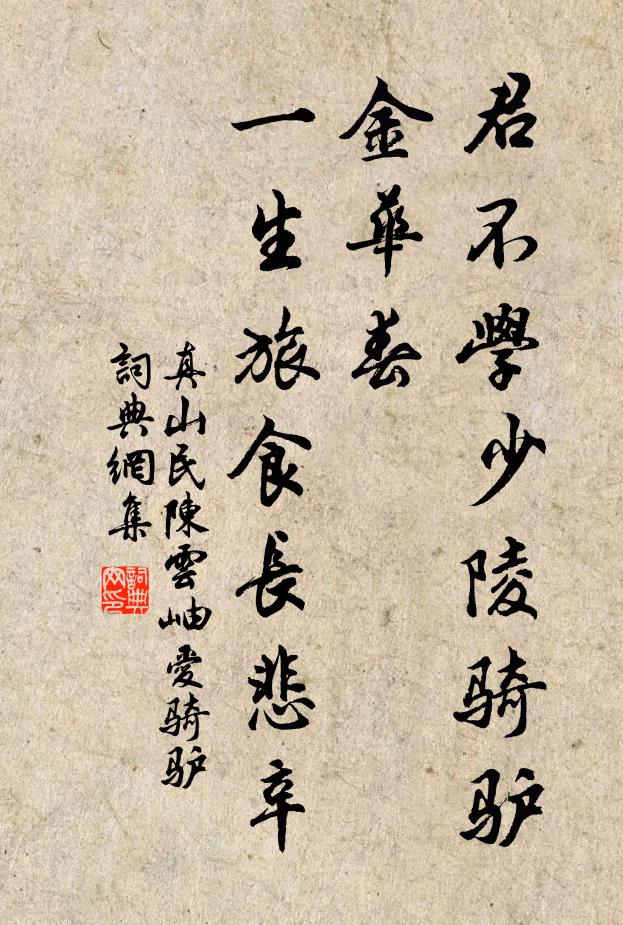 君不學少陵骑驴
金華春
一生旅食長悲辛
真山民陳雲岫愛骑驴
詞典網集
詞典网印